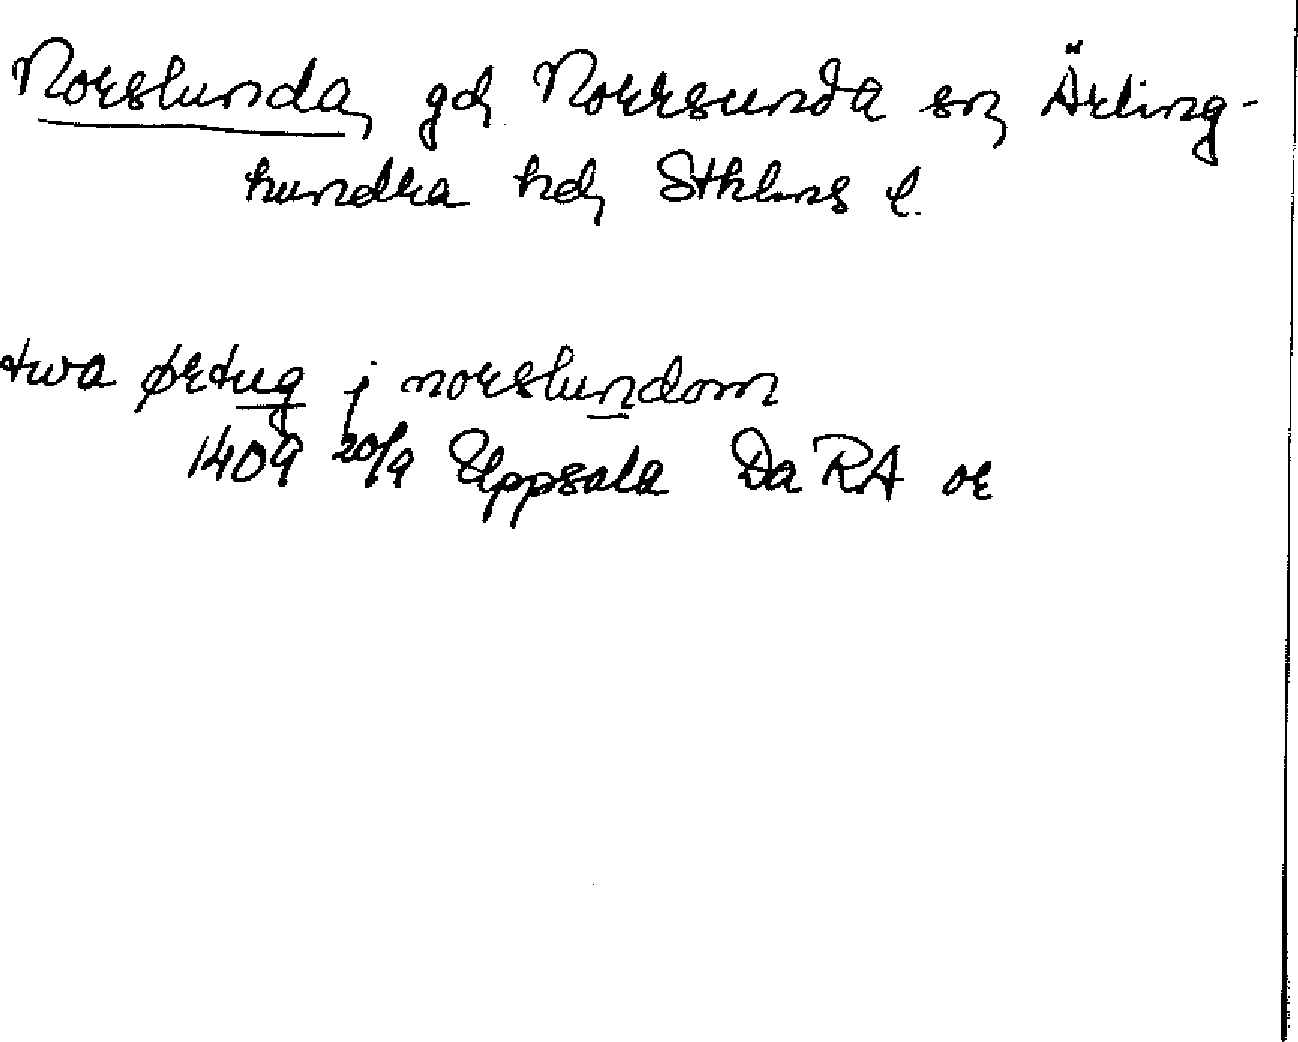 Norslunda, gd, Norrsunda sn, Ärling-
hundra hd, Sthlms l.
twa ørtug j norslundom
1409 20/9 Uppsala Da RA or